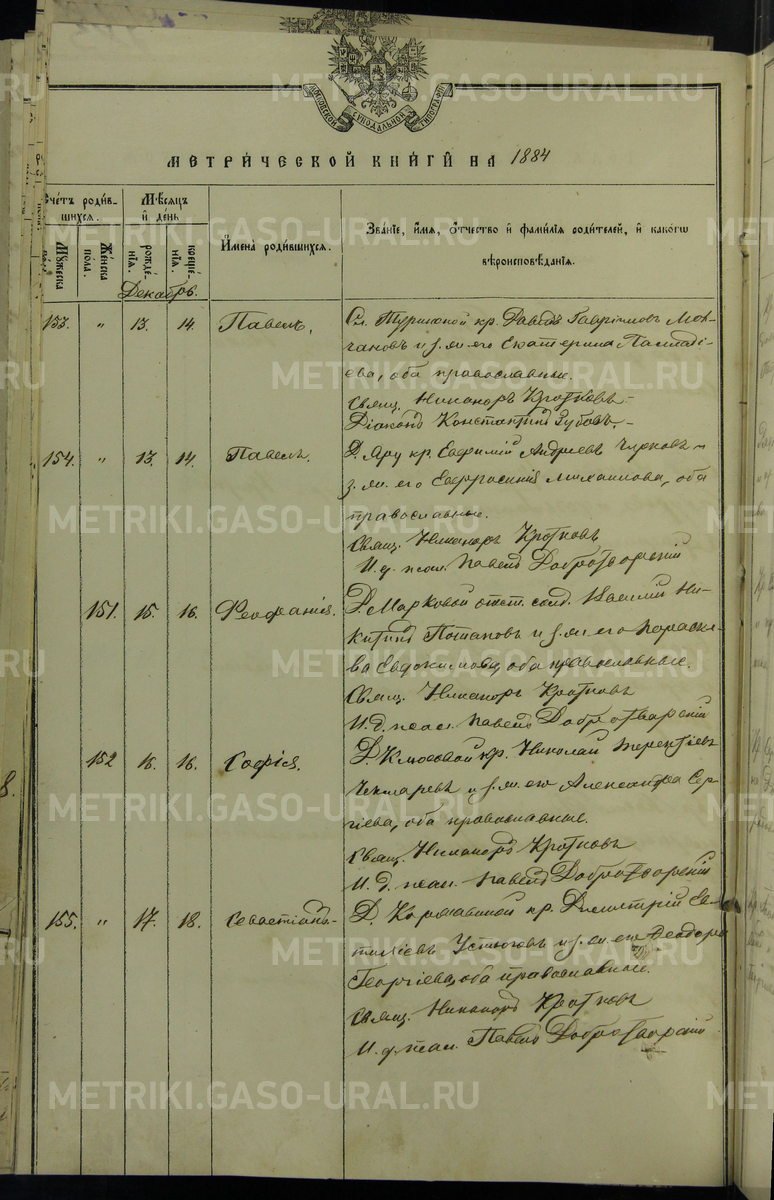 МОСКОВСКОЙ СѴНОДАЛЬНОЙ ТИПОГРАФІИ
МЕТРИ́ЧЕСКОЙ КНИ́ГИ НА 1884
Сче́тъ роди́в-
шихся.
Мѣ́сяцъ
и҆ де́нь
Му́жеска
по́ла.
Же́нска
по́ла.
рожде́-
нїя.
креще́-
нїя.
Декабрь.
И҆мена̀ роди́вшихся.
Зва́нїе, и҆́мя, ѻ҆́тчество и҆ фами́лїя роди́телей, и҆ како́гѡ
вѣроисповѣ́данїя.
153. " 13. 14. Павелъ.
Сл. Туринской кр. Давидъ Гаврііловъ Мол-
чановъ и з. ж. его Екатерина Палладі-
ева, оба православные.
Свящ. Никаноръ Кротковъ
Діаконъ Константинъ Зубовъ
154. " 13. 14. Павелъ.
Д. Яру кр. Евфимій Андреевъ и
з. ж. его Евфросинія Михаилова, оба
православные.
Свящ. Никаноръ Кротковъ
И. д. псал. Павелъ Добротворскій
151. 15. 16. Феофанія.
Д. Марковой отст. солд. Василій Ни-
китинъ Поташовъ и з. ж. его Параске-
ва Евдокимова, оба православные.
Свящ. Никаноръ Кротковъ
И. д. псал. Павелъ Добротворскій
152 16. 16. Софія.
Д. Клюсовой кр. Николай Терентіевъ
Чекмаревъ и з. ж. его Александра Сер-
гіева, оба православные.
Свящ. Никаноръ Кротковъ
И. д. псал. Павелъ Добротворскій
155. " 17. 18. Севастіанъ.
Д. Коржавиной кр. Димитрій Ев-
тихіевъ Устюговъ и з. ж. его Феодора
Георгіева, оба православные.
Свящ. Никаноръ Кротковъ
И. д. псал. Павелъ Добротворскій
METRIKI.GASO-URAL.RU